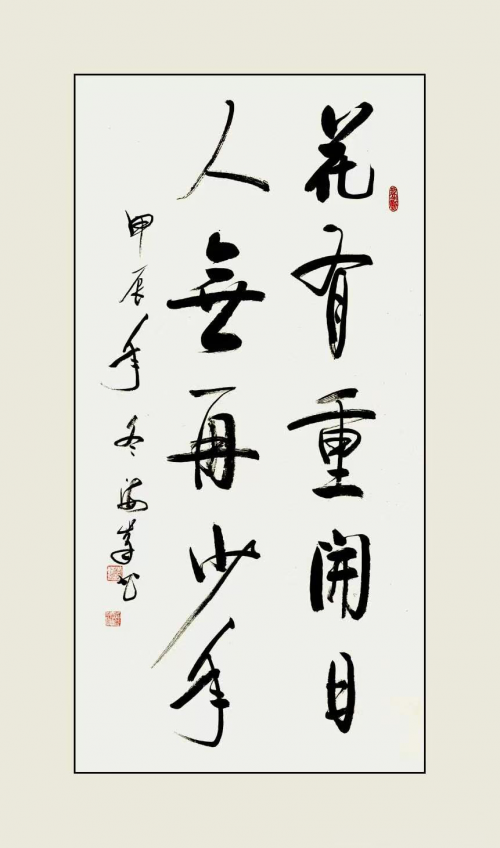 花有重開日
人無再少年
甲辰年冬海峰书